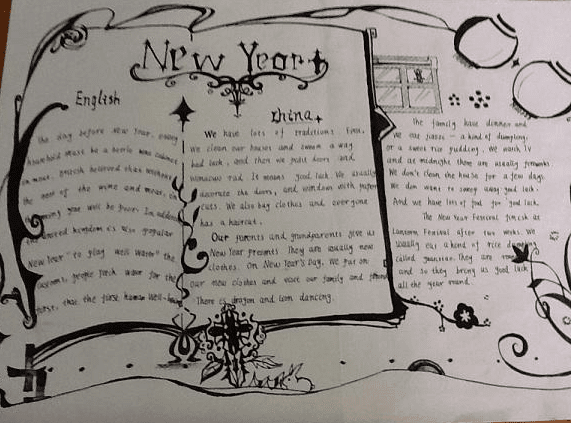 New Year
English
The day before new year, every
household must be a bottle wine cabinet
in meat. British believed that without
the rest of the wine and meat, in
coming year will be poor. In addition
the united kingdom is also popular
New Year "to play well water" the
customs, people fetch water for the
first, that the first human well-
China
We have lots of traditions. First,
We clean our houses and sweep away
bad luck, and then we paint doors and
windows red. It means good luck. We usually
decorate the doors, and windows with paper
cuts. We also buy clothes and everyone
has a haircut.
Our parents and grandparents give us
New Year presents. They are usually new
clothes. On New Year's Day, We put on
our new clothes and visit our family and friends
There is dragon and lion dancing.
The family have dinner and
We eat jiaozi - a kind of dumpling,
or a sweet rice pudding. We watch TV
and at midnight there are usually fireworks
We don't clean the house for a few days.
We don want to sweep away good luck.
And we have lots of food for good luck.
The New Year Festival finish at
Lantern Festival after two weeks. We
usually eat a kind of rice dumpling
called yuanxiao. They are
and so they bring us good luck
all the year round.